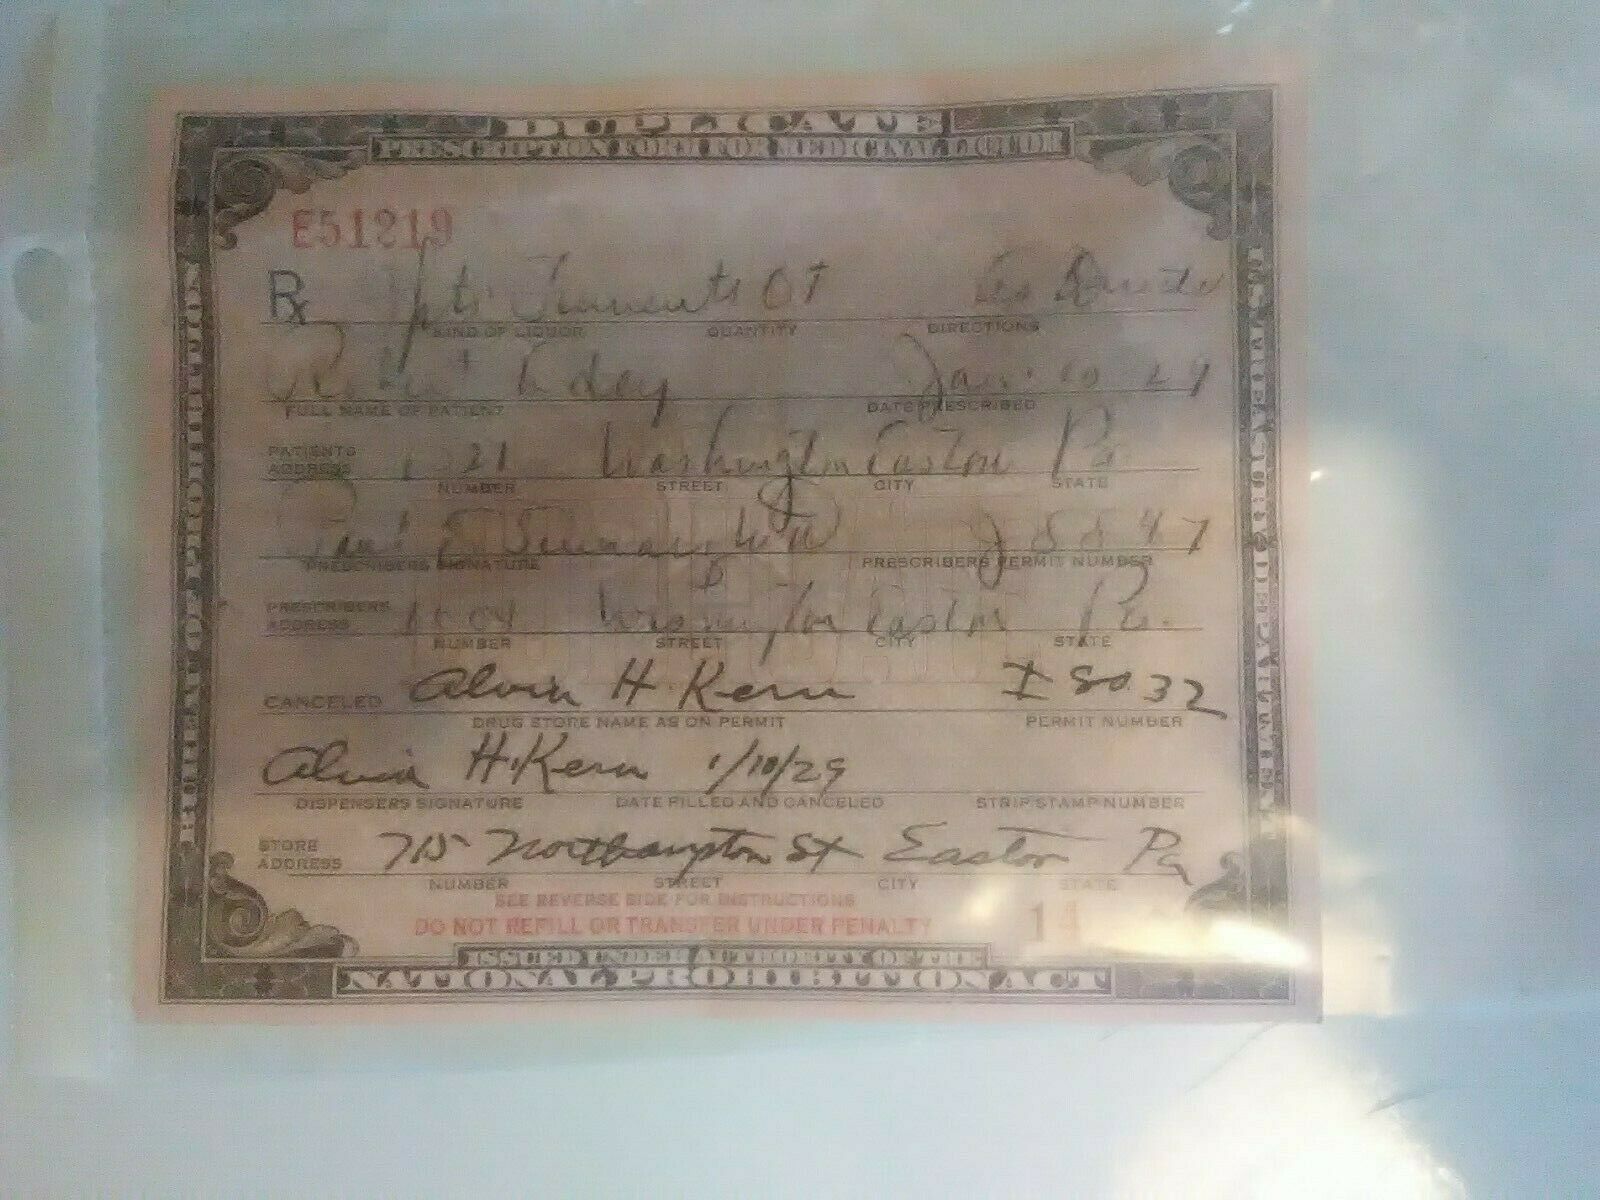 DUPLICATE
PRESCRIPTION FORM FOR MEDICINAL LIQUOR
E51219
Rx Spts Frumenti OT
KIND OF LIQUOR QUANTITY DIRECTIONS
Jan. 10 29
FULL NAME OF PATIENT DATE PRESCRIBED
PATIENTS ADDRESS Washington Easton Pa.
NUMBER STREET CITY STATE
Paul E.
PRESCRIBERS SIGNATURE PRESCRIBERS PERMIT NUMBER
PRESCRIBERS ADDRESS Washington Easton Pa.
NUMBER STREET CITY STATE
CANCELED Alvin H. Kern I 8032
DRUG STORE NAME AS ON PERMIT PERMIT NUMBER
Alvin H. Kern 1/10/29
DISPENSERS SIGNATURE DATE FILLED AND CANCELED STRIP STAMP NUMBER
STORE ADDRESS 715 Northampton St Easton Pa
NUMBER STREET CITY STATE
SEE REVERSE SIDE FOR INSTRUCTIONS
DO NOT REFILL OR TRANSFER UNDER PENALTY 14
ISSUED UNDER AUTHORITY OF THE
NATIONAL PROHIBITION ACT